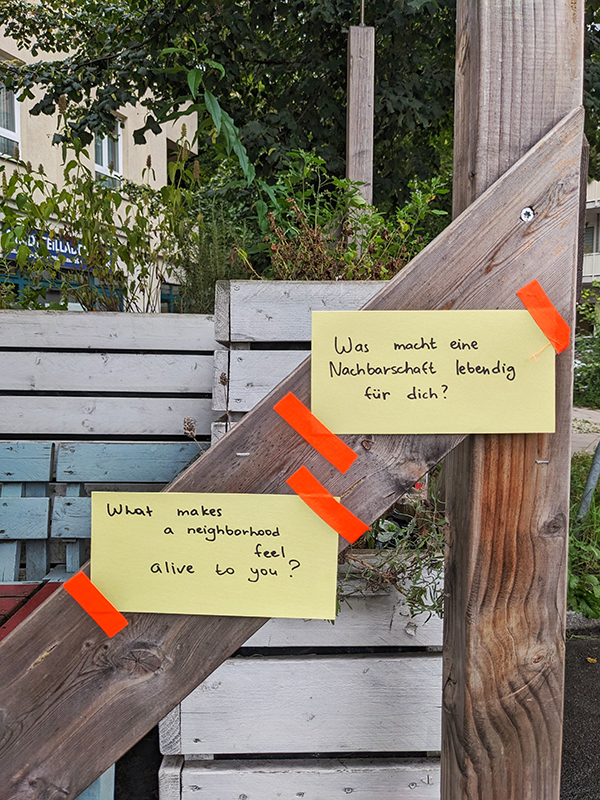 Was macht eine
Nachbarschaft lebendig
für dich?
What makes
a neighborhood
feel
alive to you?